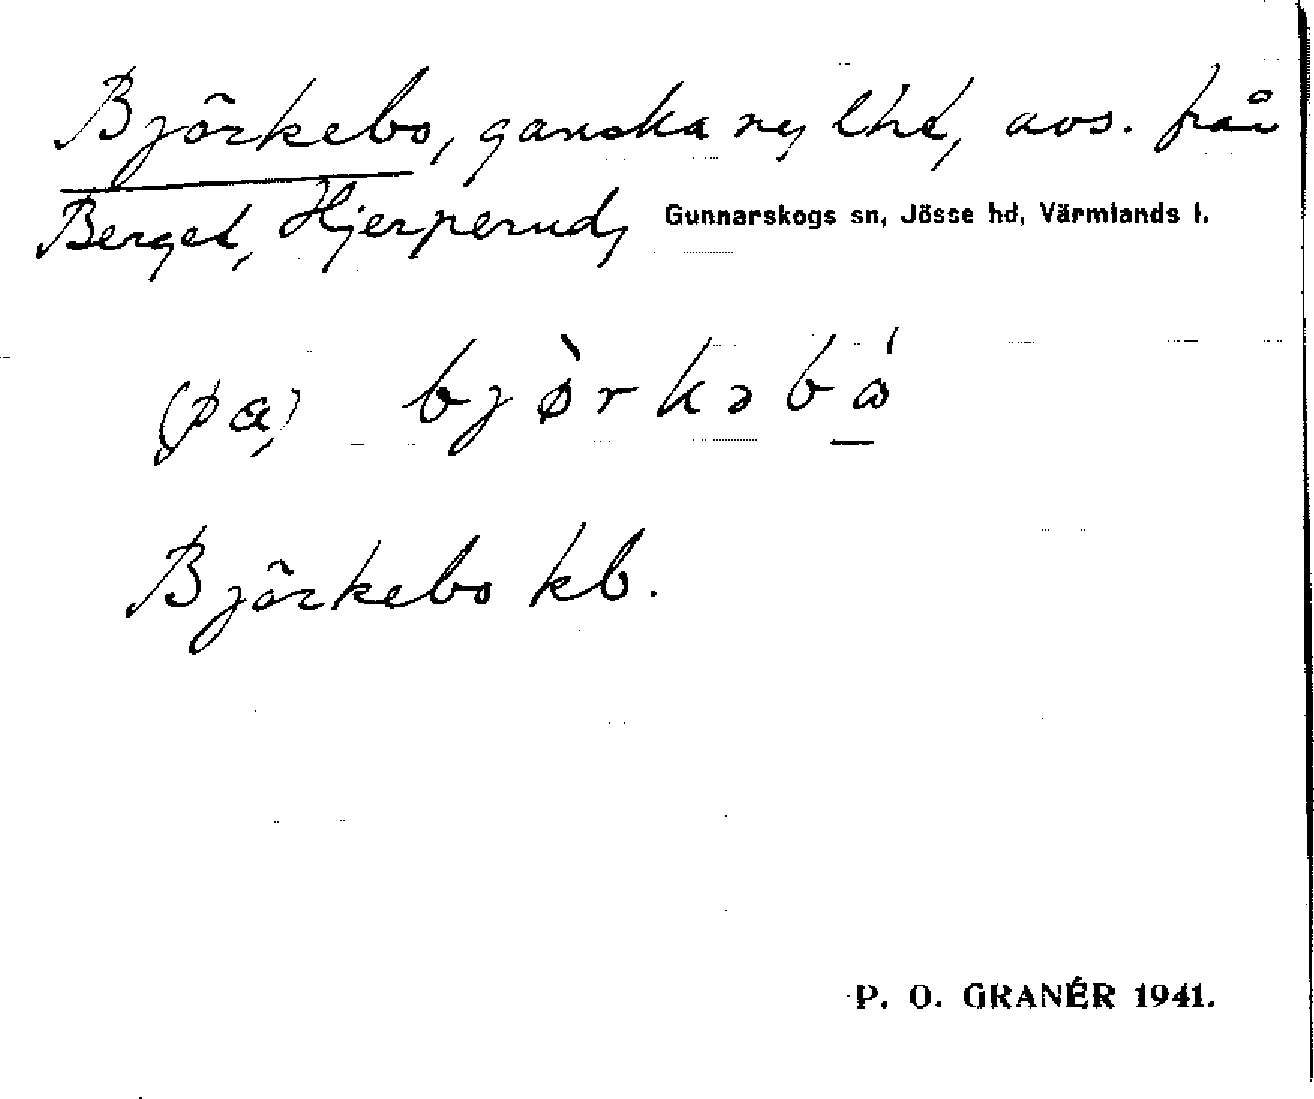 Björkebo, ganska ny lht, avs. från
Berget, Hjerperud, Gunnarskogs sn, Jösse hd, Värmlands l.
(pœ) bjørkəbω
Björkebo kb.
P. O. GRANÉR 1941.